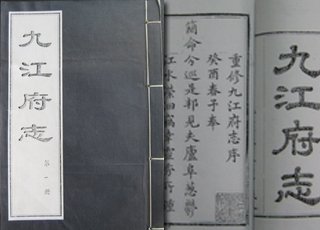 九江府志
第一册
重修九江府志序
癸酉春予奉
簡命今巡是邦見夫廬阜葱鬱
江水
九江府志